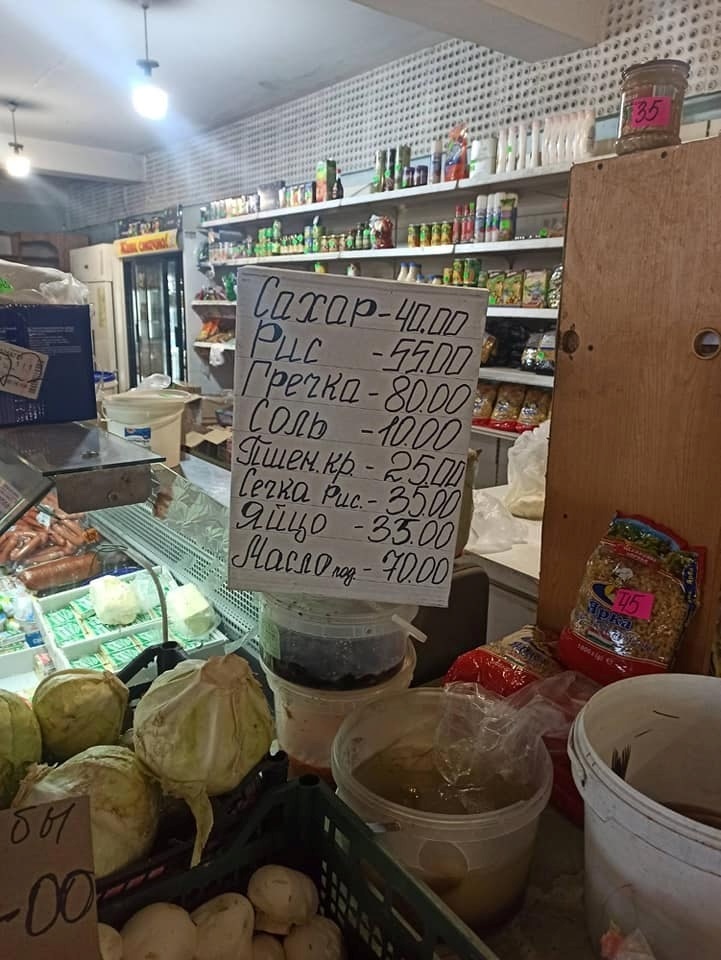 35
Сахар - 40.00
Рис - 55.00
Гречка - 80.00
Соль - 10.00
Пшен. кр. - 25.00
Сечка рис. - 35.00
Яйцо - 35.00
Масло под. - 70.00
Ярка
45
бы
-00